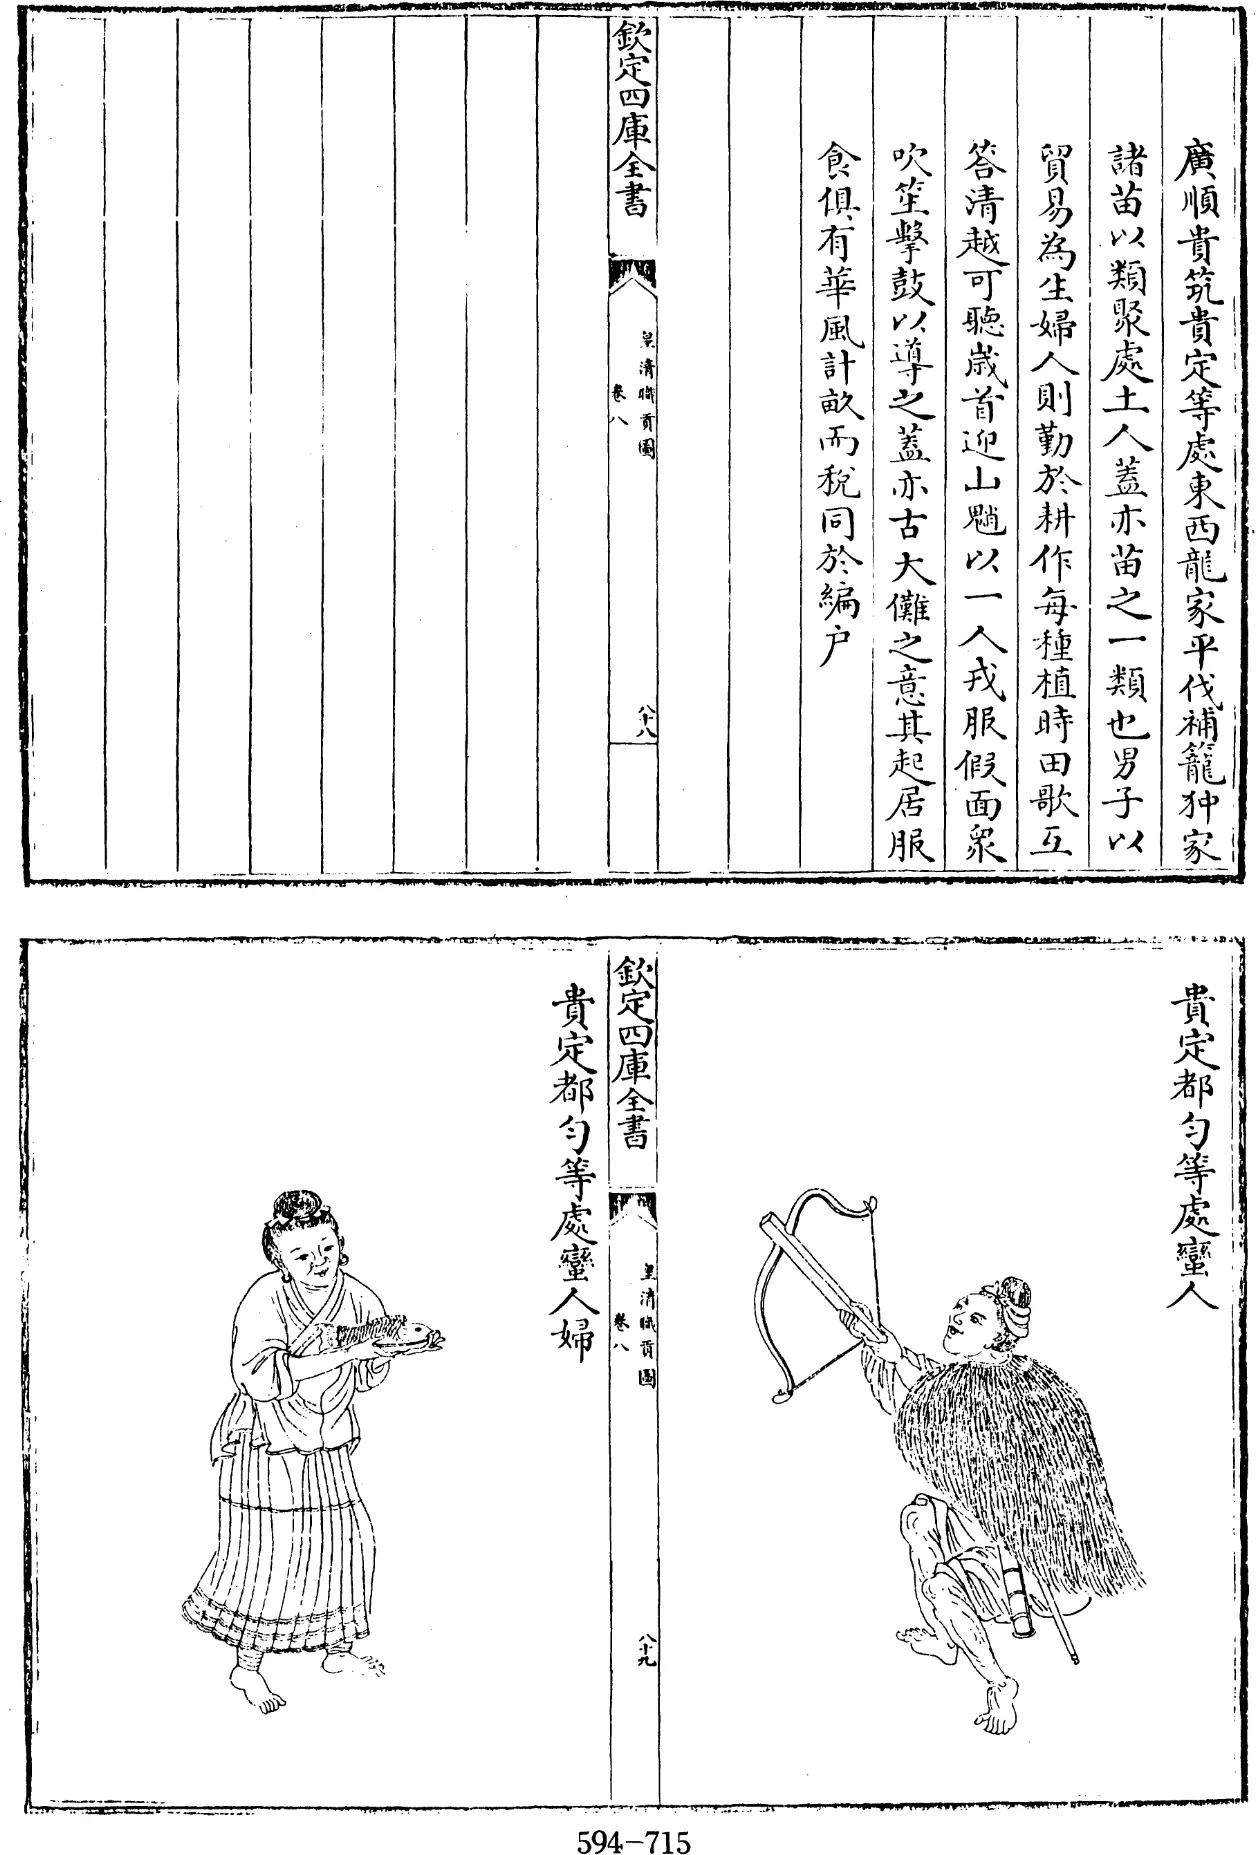 廣順貴筑貴定等處東西龍家平伐補籠狆家
諸苗以類聚處土人蓋亦苗之一類也男子以
貿易為生婦人則勤於耕作每種植時田歌互
答清越可聽歲首迎山魈以一人戎服假面衆
吹笙擊鼓以導之蓋亦古大儺之意其起居服
食俱有華風計畝而稅同於編户
欽定四庫全書
皇清職貢圖
卷八
八十八
貴定都匀等處蠻人
欽定四庫全書
皇清職貢圖
卷八
八十九
貴定都匀等處蠻人婦
594-715